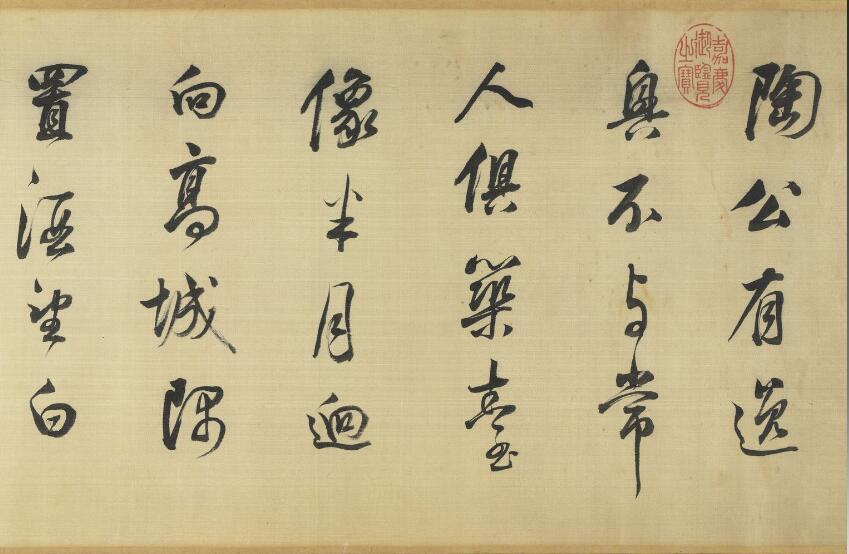 陶公有逸
興不与常
人俱築臺
像半月逈
向高城隅
置酒望白
嘉慶御覽之寶